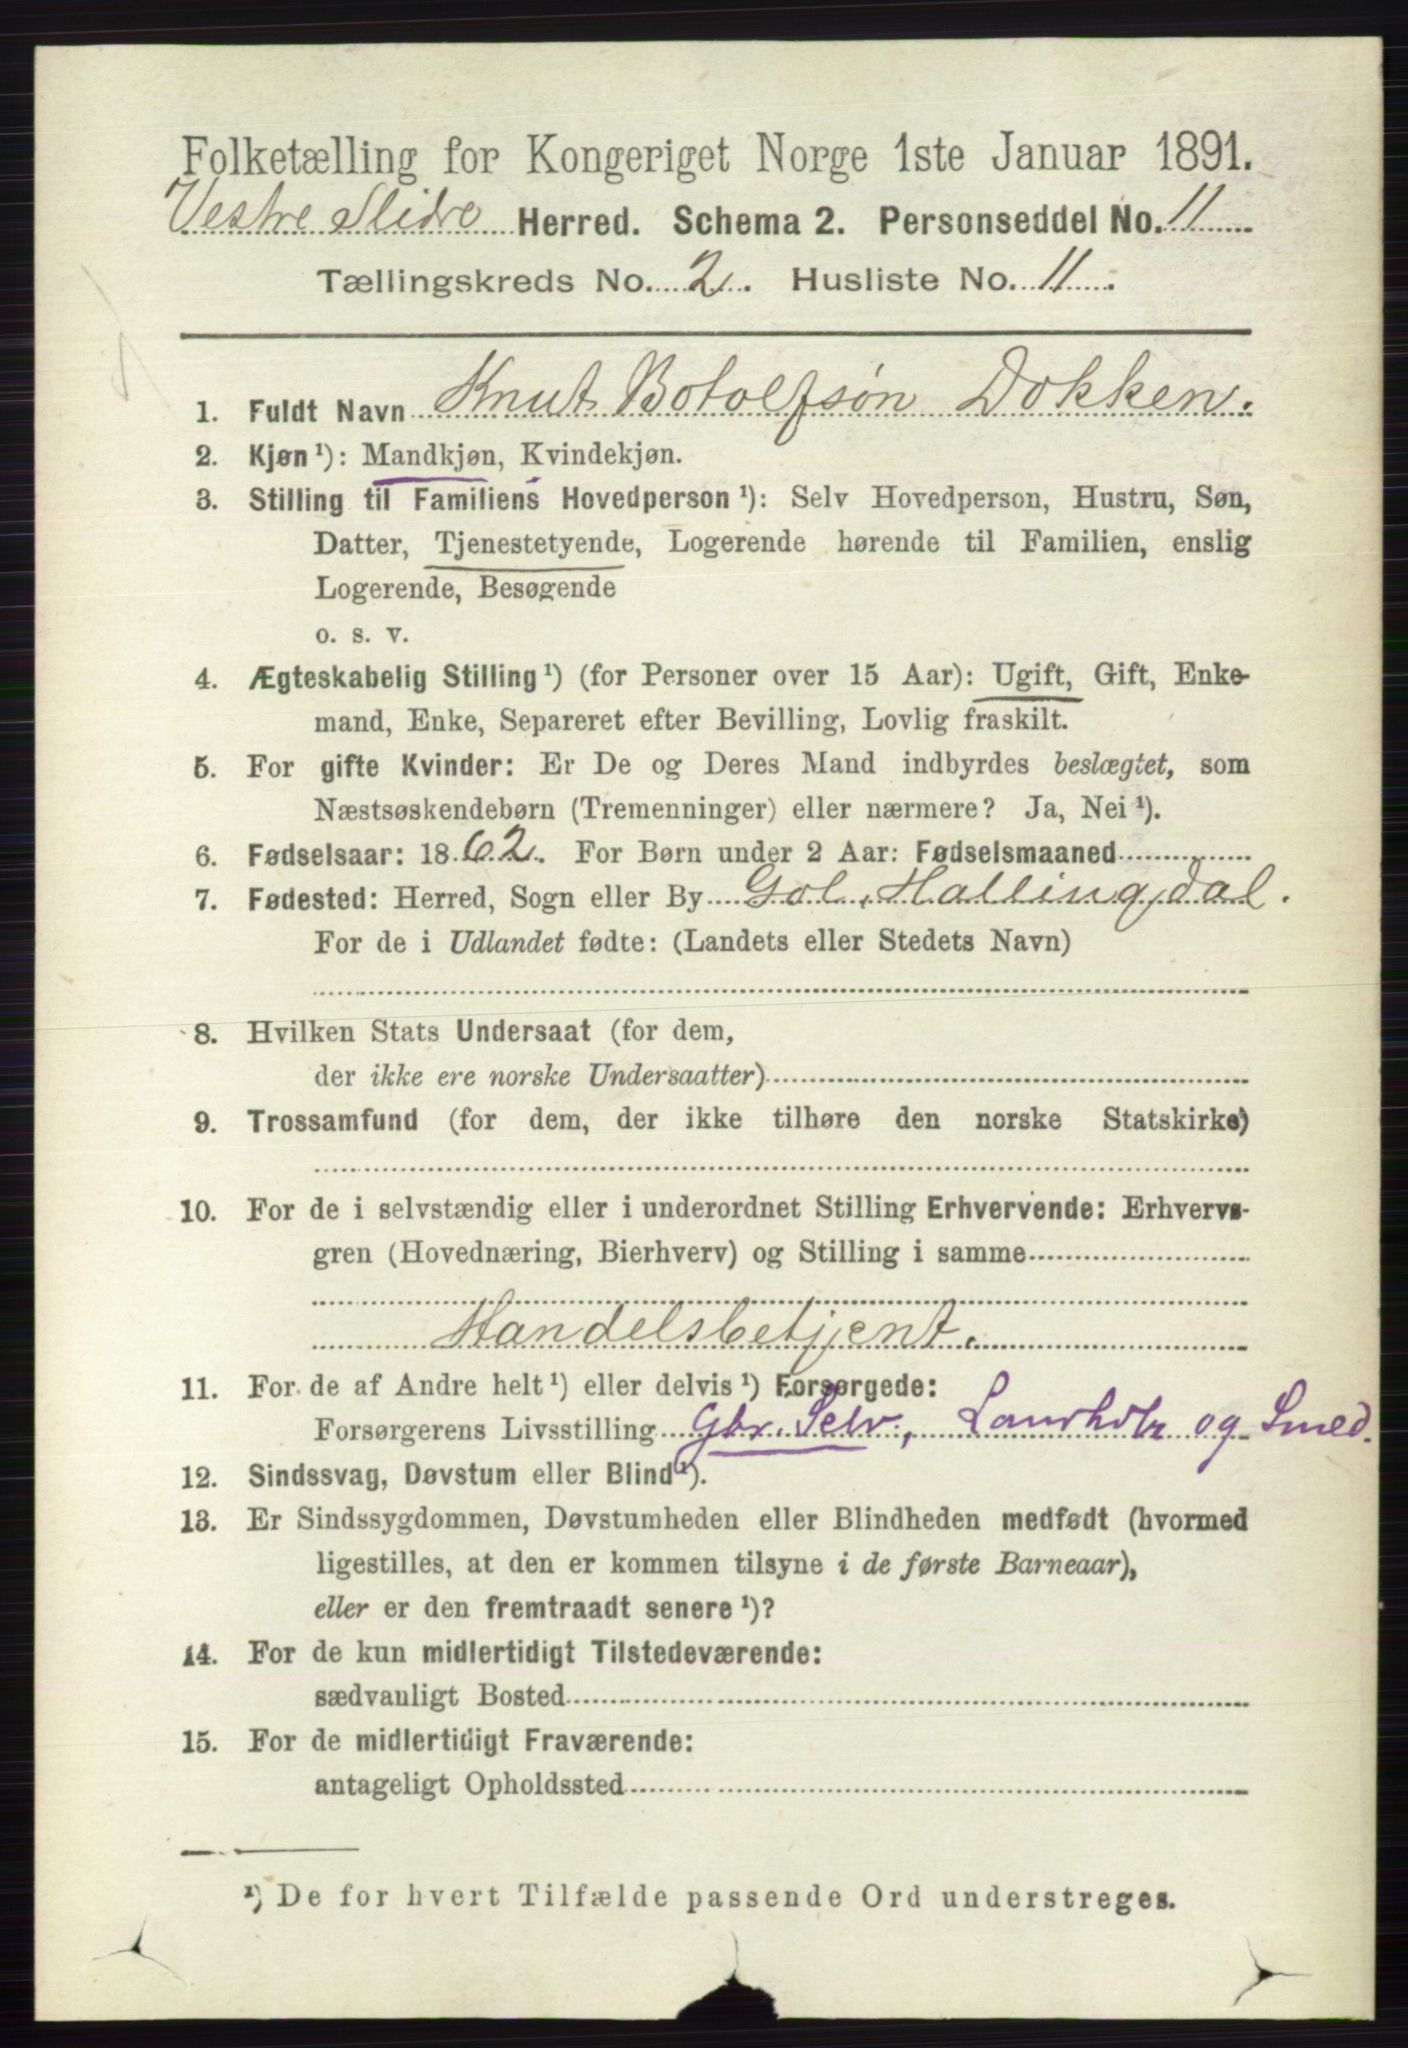 Folketælling for Kongeriget Norge 1ste Januar 1891.
Vestre Slidre Herred. Schema 2. Personseddel No. 11
Tællingskreds No. 2. Husliste No. 11.
1. Fuldt Navn Knut Botolfsøn Dokken.
2. Kjøn ¹): Mandkjøn, Kvindekjøn.
3. Stilling til Familiens Hovedperson ¹): Selv Hovedperson, Hustru, Søn,
Datter, Tjenestetyende, Logerende hørende til Familien, enslig
Logerende, Besøgende
o. s. v.
4. Ægteskabelig Stilling ¹) (for Personer over 15 Aar): Ugift, Gift, Enke-
mand, Enke, Separeret efter Bevilling, Lovlig fraskilt.
5. For gifte Kvinder: Er De og Deres Mand indbyrdes beslægtet, som
Næstsøskendebørn (Tremenninger) eller nærmere? Ja, Nei ¹).
6. Fødselsaar: 1862. For Børn under 2 Aar: Fødselsmaaned
7. Fødested: Herred, Sogn eller By Gol, Hallingdal.
For de i Udlandet fødte: (Landets eller Stedets Navn)
8. Hvilken Stats Undersaat (for dem,
der ikke ere norske Undersaatter)
9. Trossamfund (for dem, der ikke tilhøre den norske Statskirke)
10. For de i selvstændig eller i underordnet Stilling Erhvervende: Erhvervs-
gren (Hovednæring, Bierhverv) og Stilling i samme
Handelsbetjent.
11. For de af Andre helt ¹) eller delvis ¹) Forsørgede:
Forsørgerens Livsstilling Gbr. Selv, Landh. og Smed.
12. Sindssvag, Døvstum eller Blind ¹).
13. Er Sindssygdommen, Døvstumheden eller Blindheden medfødt (hvormed
ligestilles, at den er kommen tilsyne i de første Barneaar),
eller er den fremtraadt senere ¹)?
14. For de kun midlertidigt Tilstedeværende:
sædvanligt Bosted
15. For de midlertidigt Fraværende:
antageligt Opholdssted
¹) De for hvert Tilfælde passende Ord understreges.